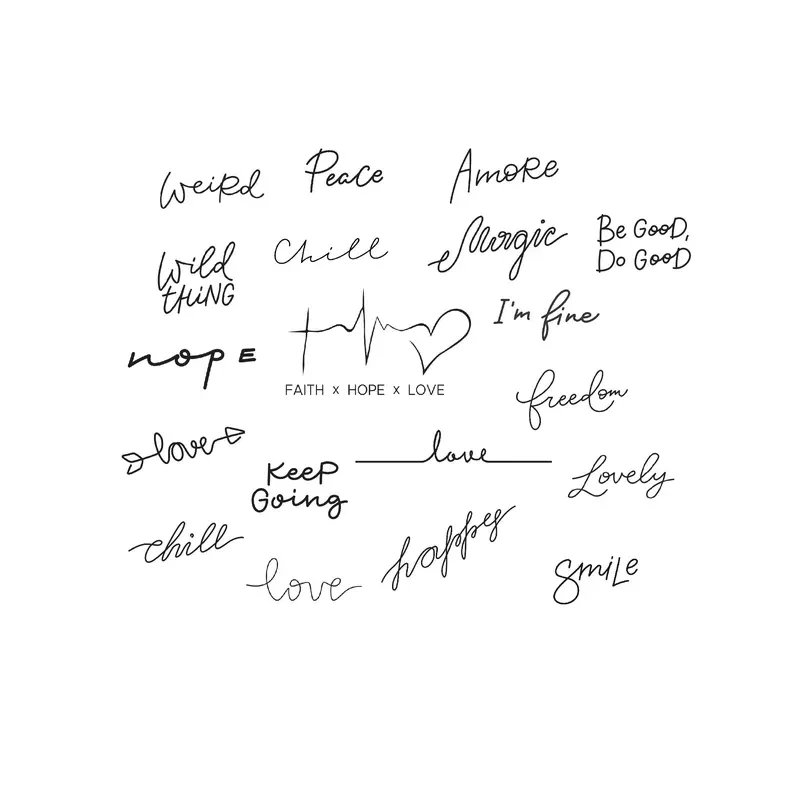 Weird
Peace
Amore
Wild
THiNG
Chill
Magic
Be GooD,
Do GooD
I'm fine
nopE
FAITH x HOPE x LOVE
freedom
love
love
Keep
Going
Lovely
chill
love
happy
SmiLe